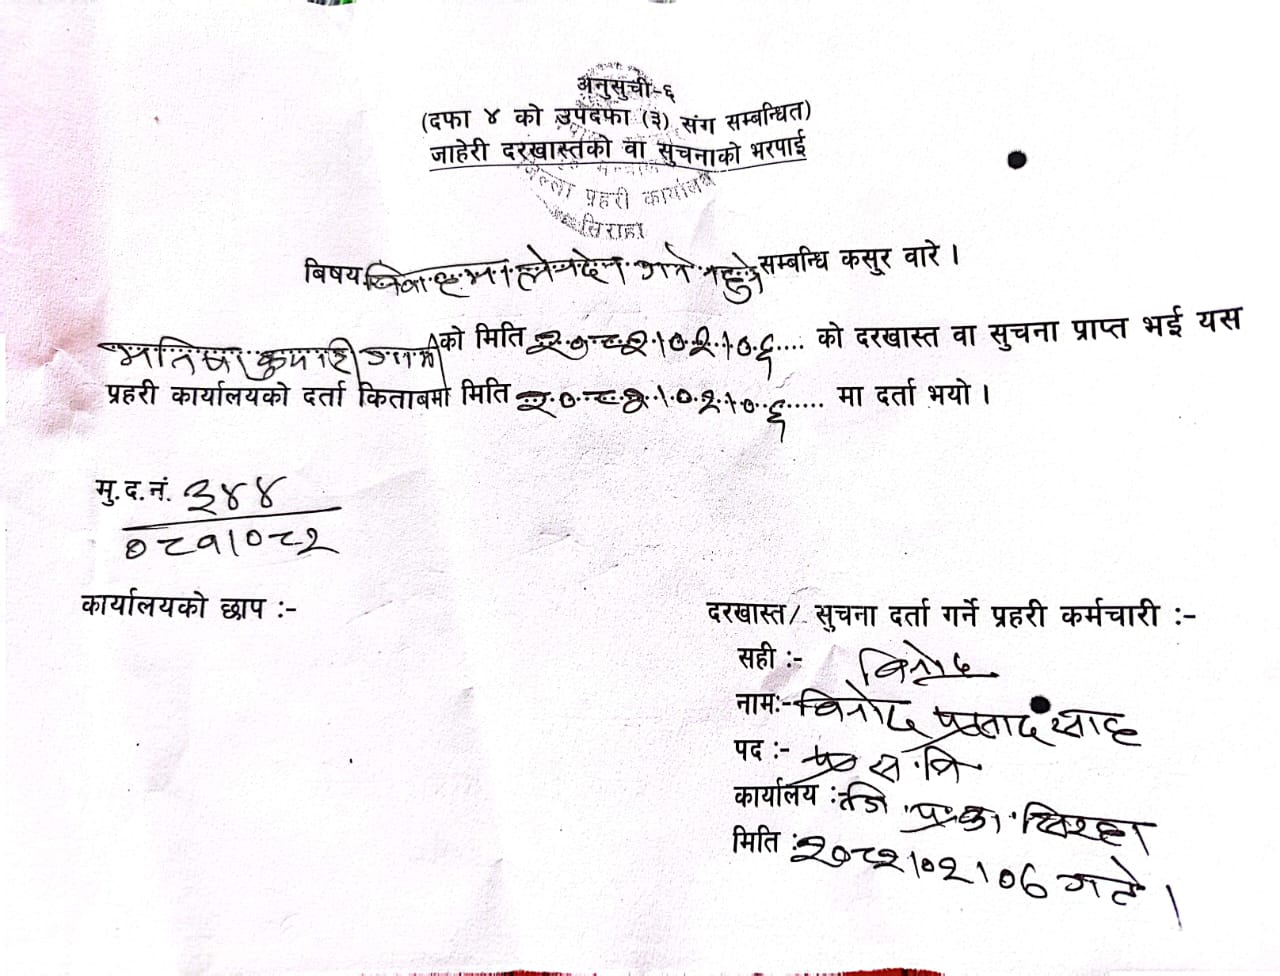 अनुसुची-६
(दफा ४ को उपदफा (३) संग सम्बन्धित)
जाहेरी दरखास्तको वा सुचनाको भरपाई
जिल्ला प्रहरी कार्यालय
सिराहा
बिषय विवाहमा लेनदेन गर्न नहुने सम्बन्धि कसुर वारे ।
कुमारी को मिति २०८२।०२।०६.... को दरखास्त वा सुचना प्राप्त भई यस
प्रहरी कार्यालयको दर्ता किताबमा मिति २०८२।०२।०६..... मा दर्ता भयो ।
मु.द.नं. ३४४
०८१।०८२
कार्यालयको छाप :-
दरखास्त/ सुचना दर्ता गर्ने प्रहरी कर्मचारी :-
सही :- विनोद
नामः- विनोद प्रसाद साह
पद :- प्र.स.नि
कार्यालय : जि.प्र.का. सिरहा
मिति : २०८२।०२।०६ गते ।